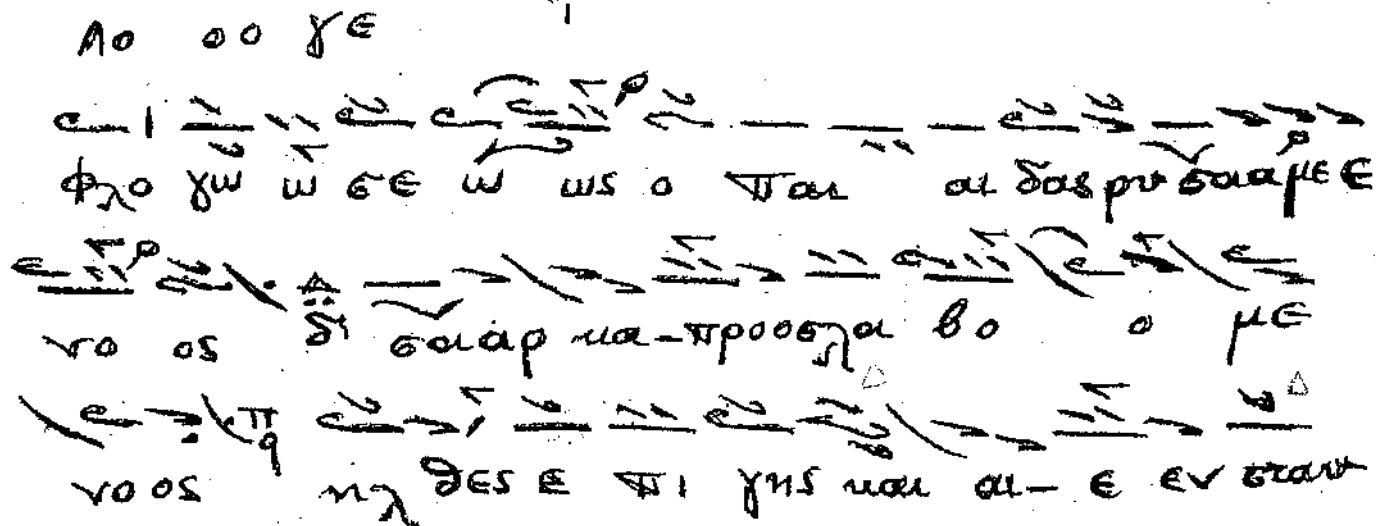 λο οο γε
φλο γω ω σε ω ως ο παι αι δας ρυ σααμε ε
νο ος δι σααρ κα-προοσλα βο ο με
νο ος ηλ θες ε πι γης και αι- ε εν σταυ